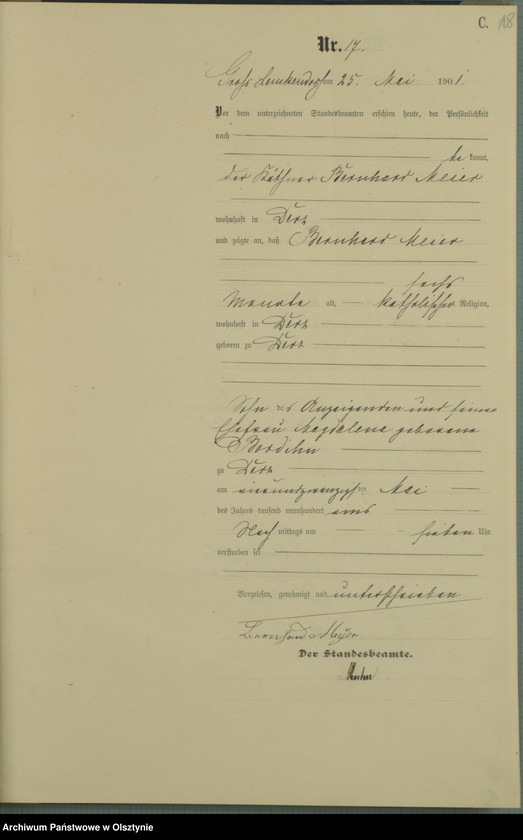 C. 18
Nr. 17.
Groß Lemkendorf am 25. Mai 1901.
Vor dem unterzeichneten Standesbeamten erschien heute, der Persönlichkeit
nach
bekannt,
der Käthner Bernhard Meier
wohnhaft in Derz
und zeigte an, daß Bernhard Meier
sechs
Monate alt, katholischer Religion,
wohnhaft in Derz
geboren zu Derz
Sohn des Anzeigenden und seiner
Ehefrau Magdalena geborene
Bordihn
zu Derz
am vierundzwanzigsten Mai
des Jahres tausend neunhundert eins
Nachmittags um sieben Uhr
verstorben sei
Vorgelesen, genehmigt und unterschrieben
Bernhard Meyer
Der Standesbeamte.
Archiwum Państwowe w Olsztynie